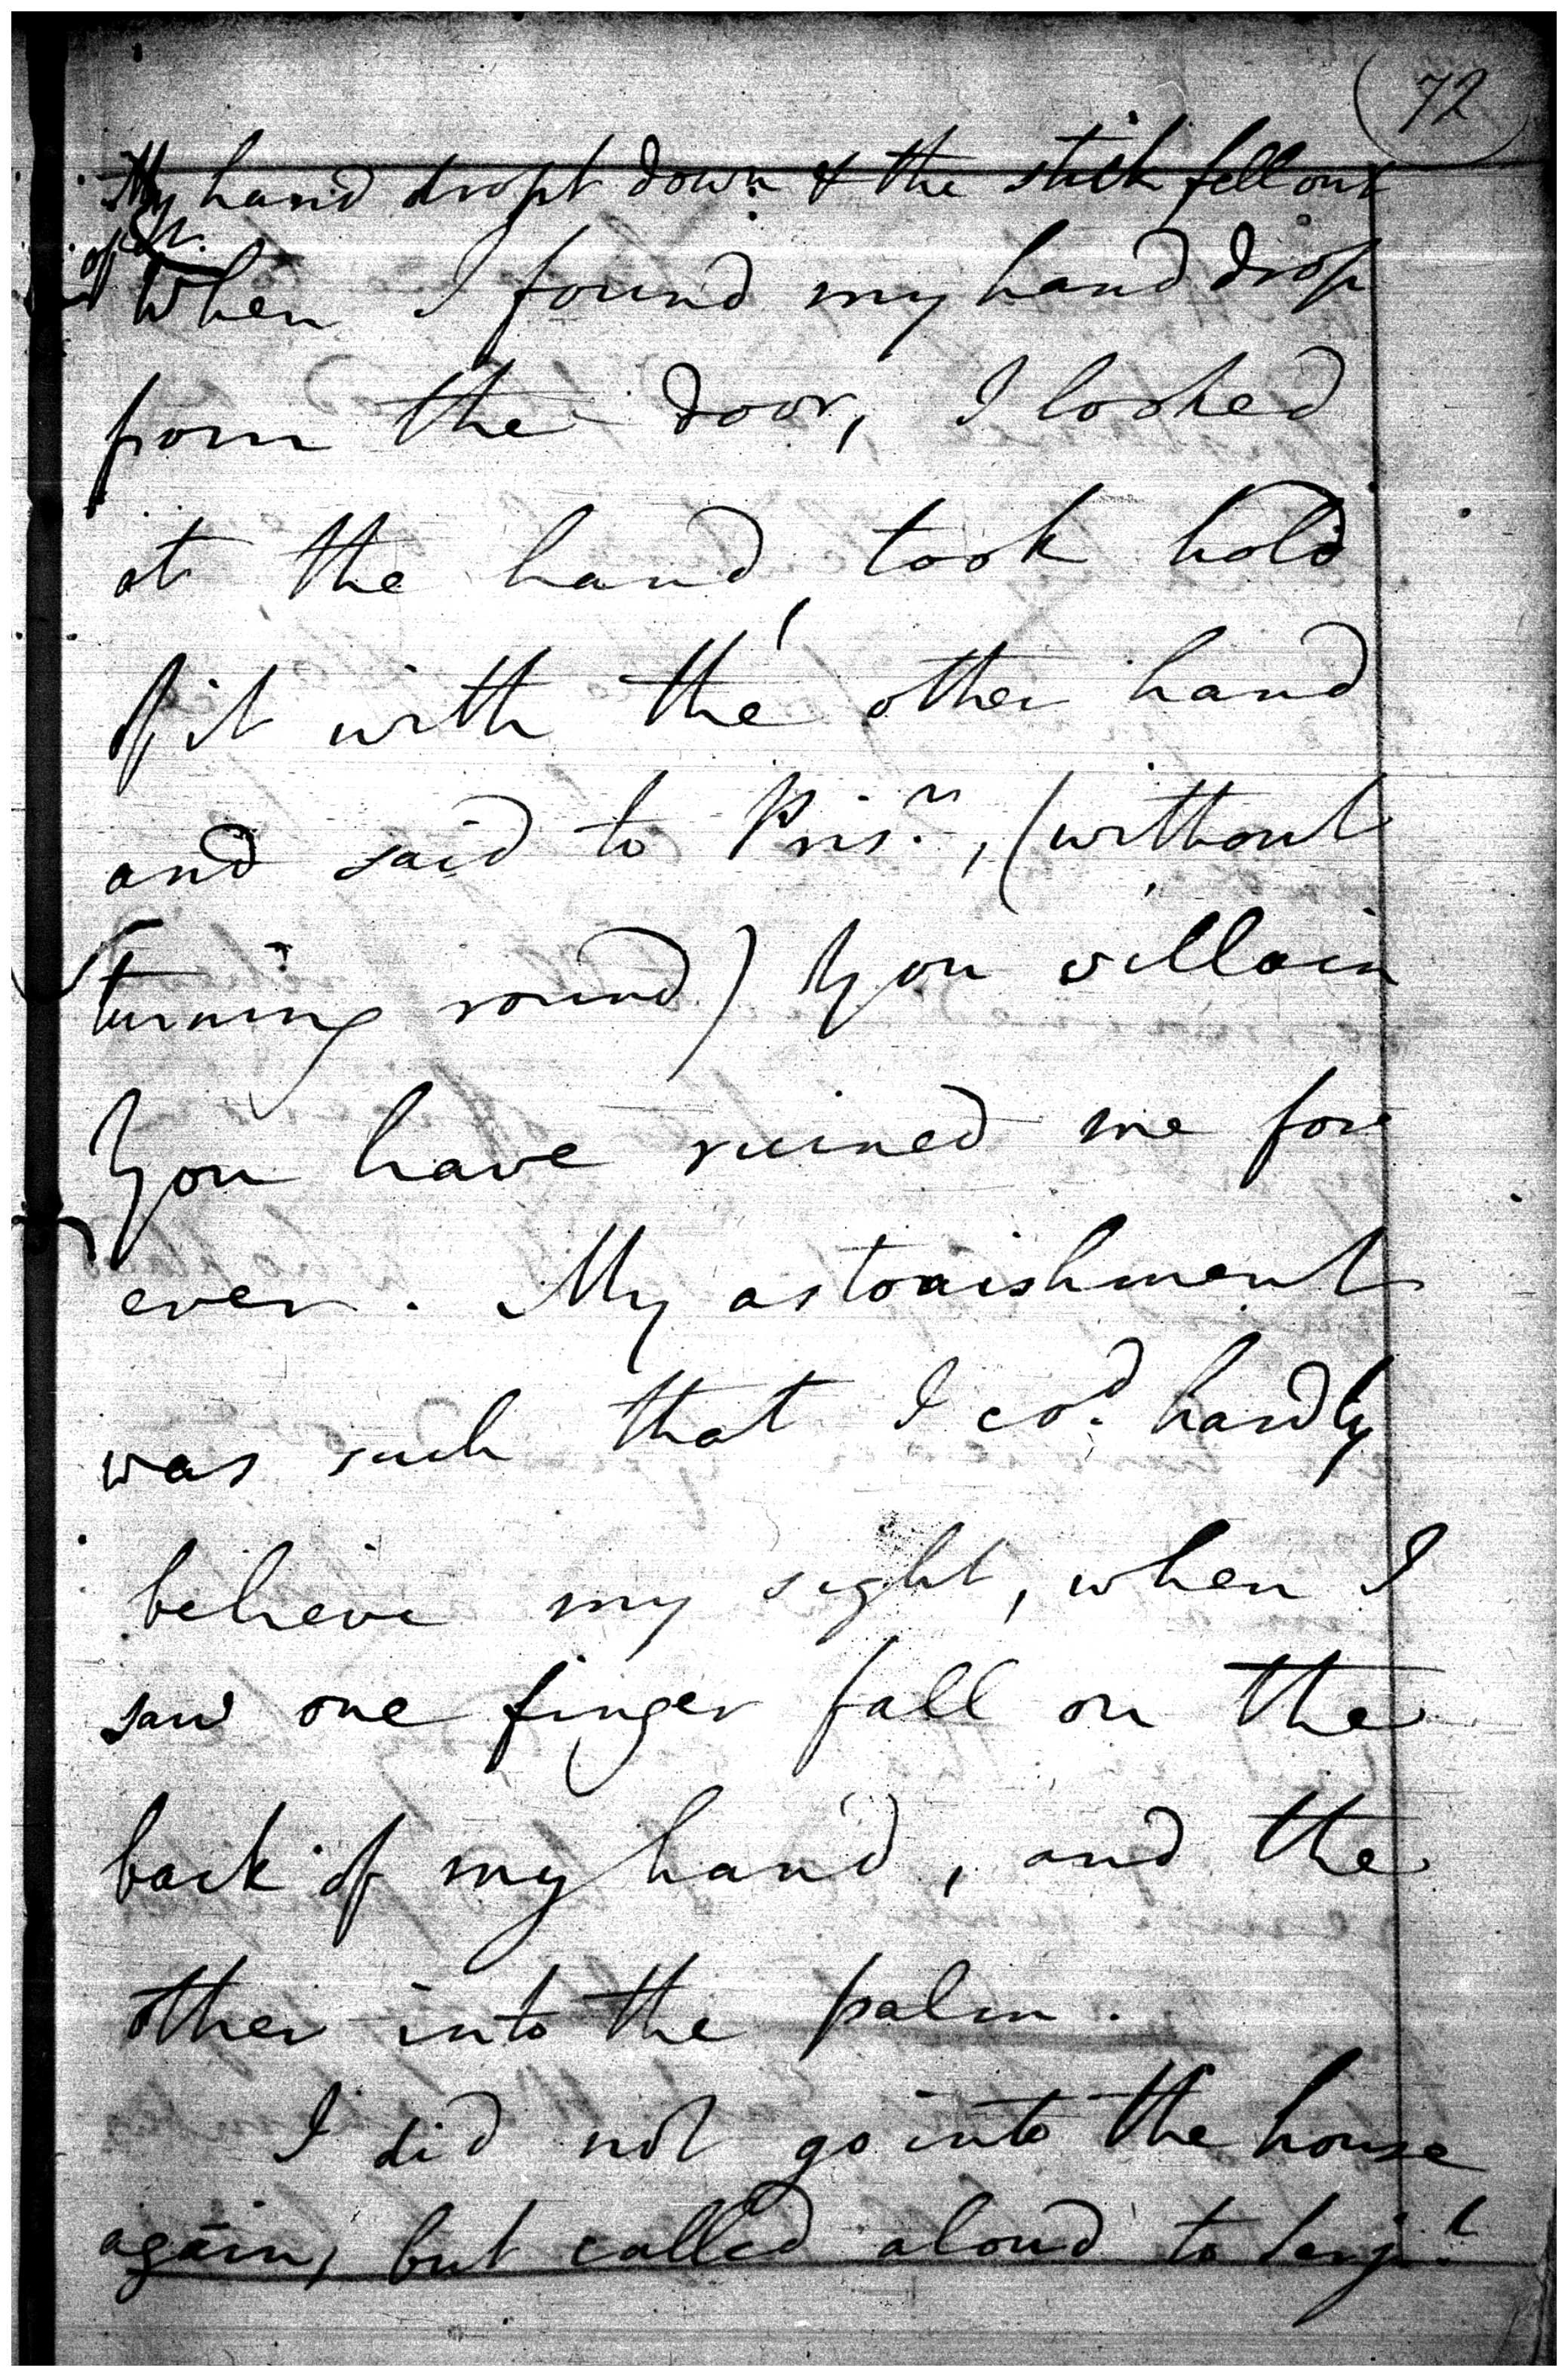 72
My hand dropt down & the stick fell out
of it.
When I found my hand drop
from the door, I looked
at the hand, took hold
of it with the other hand
and said to Pris.n, (without
turning round) You villain
You have ruined me for
ever. My astonishment
was such that I co.d hardly
believe my sight, when I
saw one finger fall on the
back of my hand, and the
other into the palm.
I did not go into the house
again, but called aloud to Serj.t